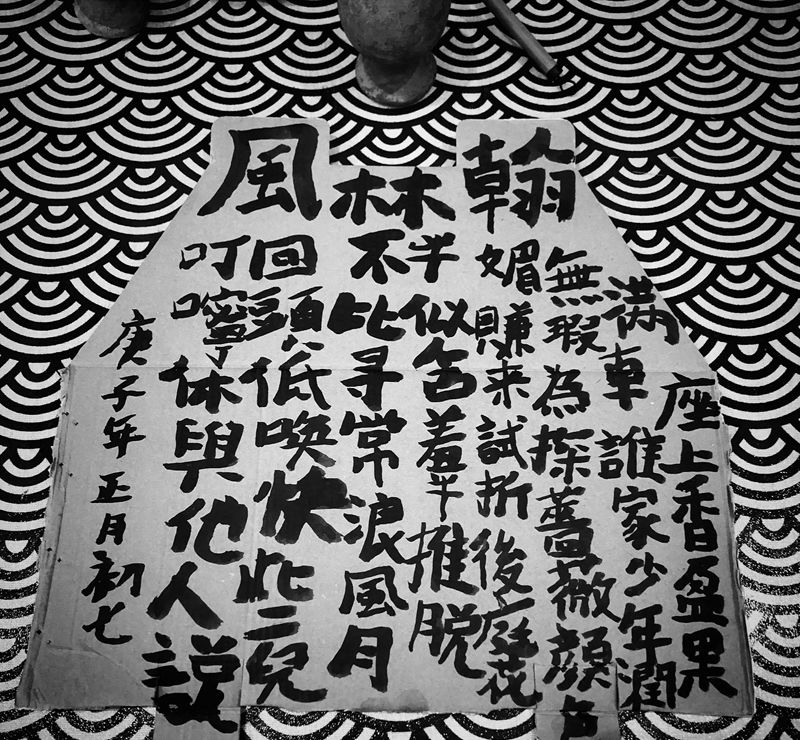 翰林風
座上香盈果
滿車誰家少年潤
無瑕為探薔薇顔色
媚賺来試折後庭花
半似含羞半推脱
不比寻常浪風月
回頭低唤快些兒
叮嚀休與他人説
庚子年正月初七